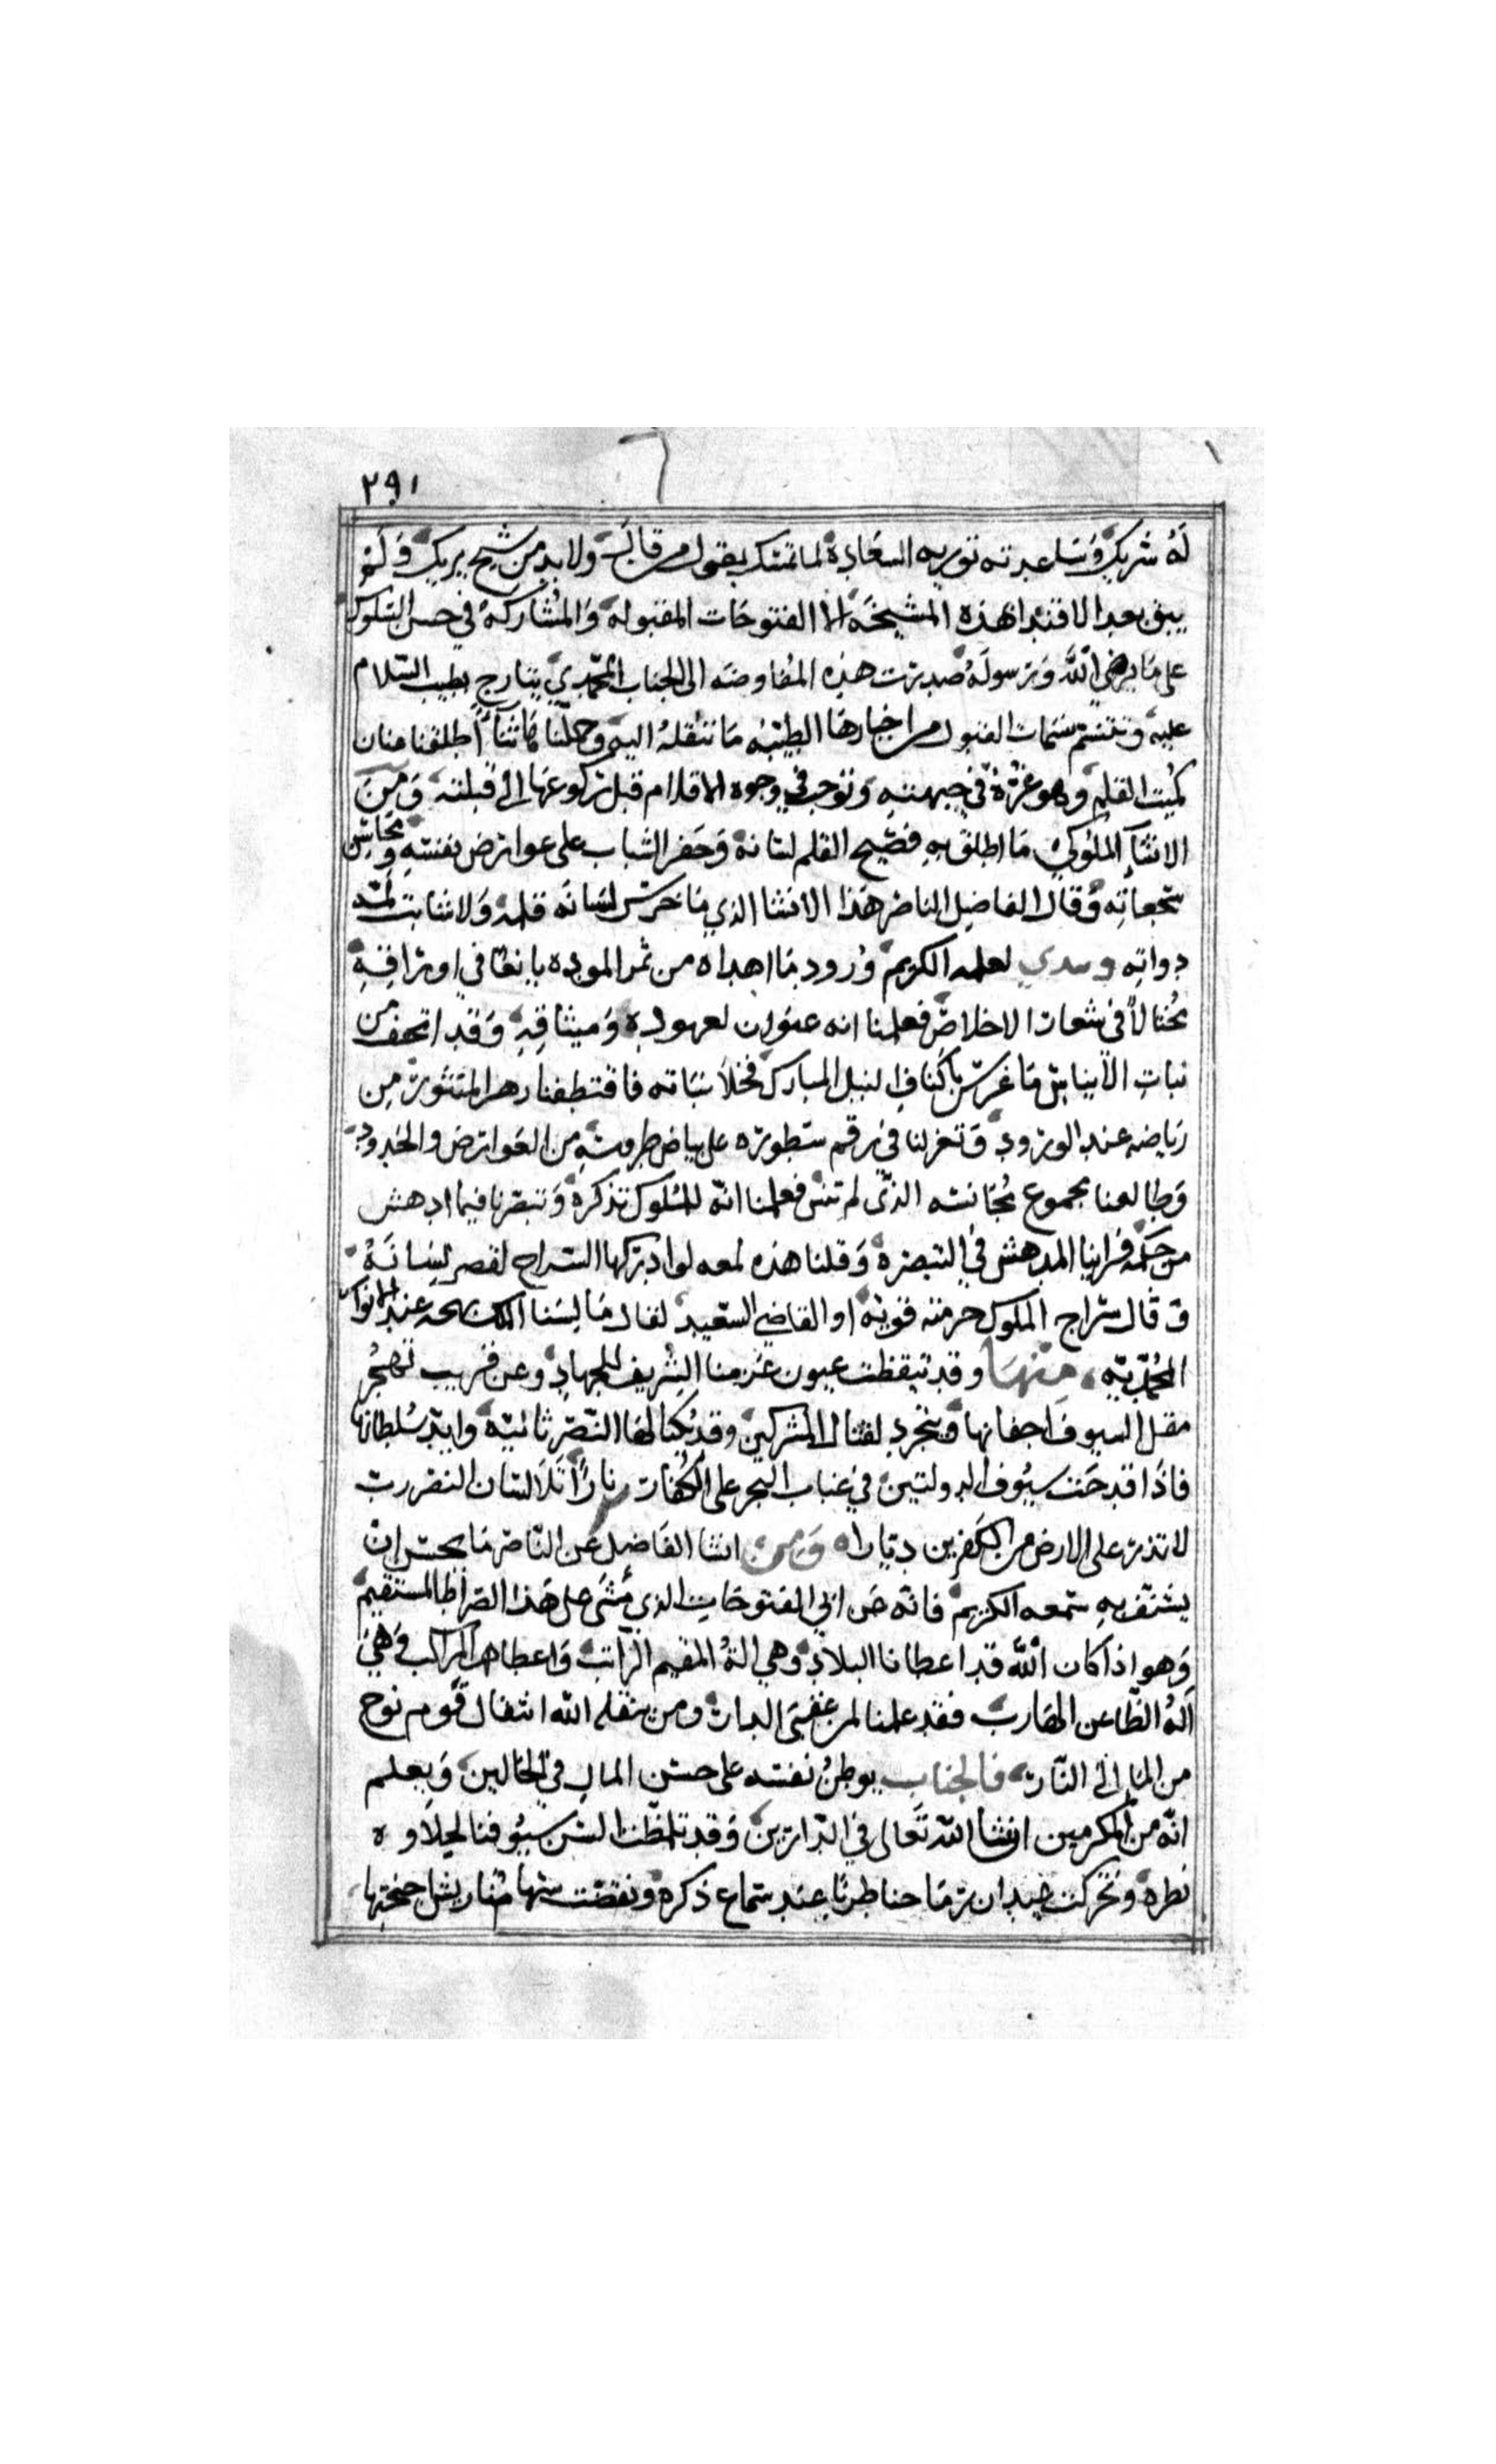 ٢٩١
له شريك وساعدته توريه السعادة لما تمسك بقول من قال ولا بد من شيخ يريك ولم
يبق بعد الاقتدا بهذه المشيخه الا الفتوحات المقبولة والمشاركة في حسن السلوك
على ما يرضي الله ورسوله صدرت هذه المفاوضه الى الجناب المحمدي بتارج بطيب السلام
عليه وتتنسم نسمات القبول من اخبارها الطيبه ما تنقله اليه وحملنا ثنا اطلقنا عنان
كميت القلم وهو غرة في جبهته ونوجه وجوه الاقلام قبل ركوعها الى قبلته ومن
الانشاء الملوكي ما اطلق به فصيح القلم لسانه وحفر الشباب على عوارض نفسه ومحاسن
سجعاته وقال الفاضل الناصر هذا الانشا الذي ما خرس لسانه قلمه ولا شابت لمة
دواته ونبدي لعلمه الكريم ورود ما اهداه من ثمر الموده يانعا في اوراقه
مختالا في شعار الاخلاص فعلمنا انه عنوان لعهوده وميثاقه وقد اتحف من
نبات الانيات ما غرس باكناف النيل المبارك فحلا نباته فاقتطفنا زهر المنثور من
رياضه عند الورود وتغزلنا في رقم سطوره على بياض طروسه من العوارض والخدود
وطالعنا بمجموع مجانسه الذي لم تنس فعلمنا انه للملوك تذكرة وتبصرنا فيما ادهش
من جمله فراينا المدهش في التبصرة وقلنا هذه لمعه لو ادركها السراج لقصر لسانه
وقال سراج الملوك حرمته قويه او القاضي السعيد لقال ما لسنا الملك بهجه عند الانوار
المحمديه منها وقد تيقظت عيون عزمنا الشريف للجهاد وعن قريب تهجر
مقل السيوف اجفانها وتتجرد لقتال المشركين وقد كنا لها النصر ثانيه وايد سلطانها
فاذا قدحت سيوف الدولتين في عباب البحر على الكفار نارا تلا لسان النصر رب
لا تذر على الارض من الكفرين ديارا ومن انشا الفاضل عن الناصر ما يحسن ان
يشنف به سمعه الكريم فانه من ابي الفتوحات الذي مشى على هذا الصراط المستقيم
وهو اذا كان الله قد اعطانا البلاد وهي اله المقيم الراتب واعطاهم المراكب وهي
اله الظاعن الهارب فقد علمنا لمن عقبى الدار ومن ينقله الله انتقال قوم نوح
من الماء الى النار فالجناب يوطن نفسه على حسن المال في الحالين ويعلم
انه من المكرمين انشا الله تعالى في الدارين وقد تلمظت السن سيوفنا لحلاوه
نطره وتحركت عيدان رماحنا طربا عند سماع ذكره ونفضت سهامنا ريش اجنحتها